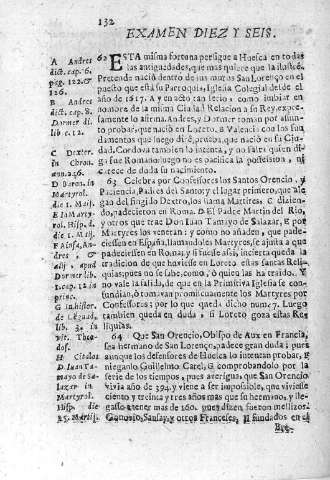 132
EXAMEN DIEZ Y SEIS.
62 ESTA misma fortuna persigue a Huesca en todas
las antiguedades, que mas quiere que la ilustre.
Pretende nació dentro de sus muros San Lorenço en el
puesto que está su Parroquia, Iglesia Colegial desde el
año de 1617. A y en acto tan serio, como embiar en
nombre de la misma Ciudad Relacion a su Rey, expre-
samente lo afirma. Andres, y Dormer toman por assun-
to probar, que nació en Loreto. B Valencia con los fun-
damentos que luego diré, prueba, que nació en su Ciu-
dad. Cordova tambien lo intenta, y no falta quien di-
ga fue Romano: luego no es pacifica la possesion, ni
carece de duda su nacimiento.
63 Celebra por Confessores los Santos Orencio, y
Paciencia, Padres del Santo; y el lugar primero, que ale-
gan del fingido Dextro, los llama Martires, C dizien-
do, padecieron en Roma. D El Padre Martin del Rio,
y otros que trae Don Juan Tamayo de Salazar, E por
Martyres los veneran: y como no añaden, que pade-
ciessen en España, llamandoles Martyres, se ajusta a que
padeciessen en Roma; y si fuesse assi, incierta queda la
tradicion de que huviesse en Loreto estas Santas Reli-
quias; pues no se sabe, como, ò quien las ha traido. Y
no vale la salida, de que en la Primitiva Iglesia se con-
fundian, ò tomavan promiscuamente los Martyres por
Confessores; por lo que queda dicho num. 7. Luego
tambien queda en duda, si Loreto goza estas Re-
liquias.
64 Que San Orencio, Obispo de Aux en Francia,
sea hermano de San Lorenço, padece gran duda; pues
aunque los defensores de Huesca lo intentan probar, F
nieganlo Guillelmo Catel, G comprobandolo por la
serie de los tiempos, pues averigua, que San Orencio
vivia año de 394. y viene a ser imposible, que viviesse
ciento y treinta y tres años mas que su hermano, y lle-
gasse a tener mas de 160. pues dizen fueron mellizos.
Garausio, Sausay, y otros Franceses, H fundados en el
Bre-
A Andres
dict. cap. 6.
pag. 122. &
126.
B Andres
dict. cap. 8.
Dormer di.
lib c. 12.
C Dexter.
in Chron.
ann. 226.
D Baron. in
Martyrol.
die 1. Maij.
E In Marty-
rol. Hisp. d.
die 1. Maij.
F Ainsa, An-
dres, &
alij, apud
Dormer lib.
1. cap. 12 in
princ.
G In histor.
de Leguad.
lib. 3. in
vit. Theo-
dos.
H Citalos
D. Juan Ta-
mayo de Sa-
lazar in
Martyrol.
Hisp. die
25. Martij.